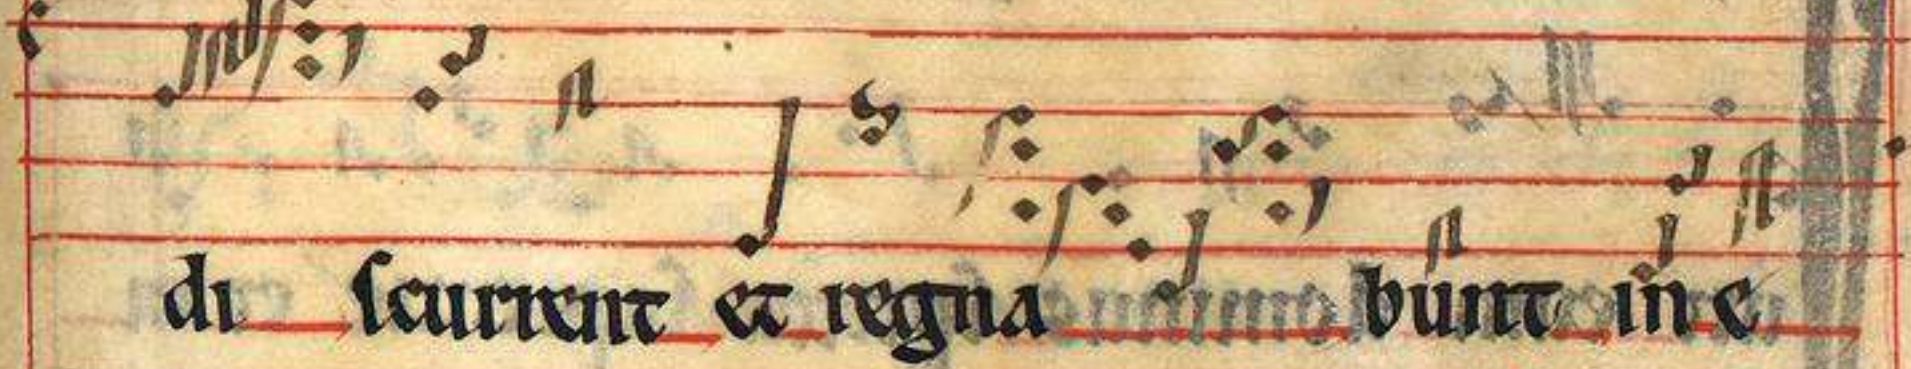 di scurrent et regna bunt in e